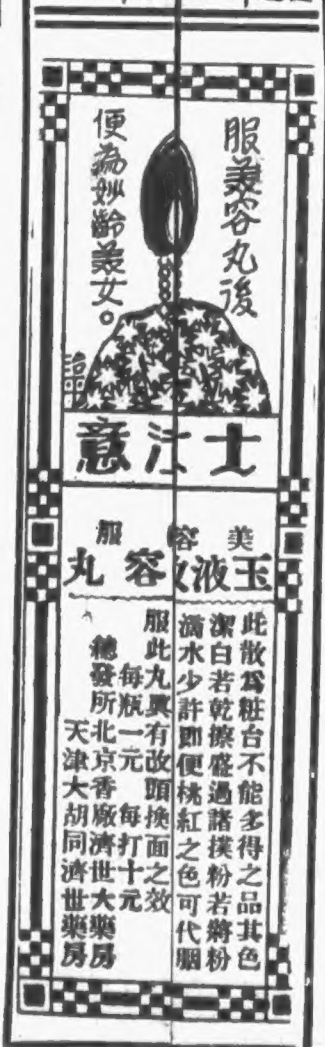 服美容丸後
便為妙齡美女。
士注意
美容
服
玉液散容丸
此散爲粧台不能多得之品其色
潔白若乾擦盛過諸撲粉若將粉
滴水少許即便桃紅之色可代胭
服此丸眞有改頭換面之效
每瓶一元　每打十元
總發所北京香廠濟世大藥房
天津大胡同濟世藥房